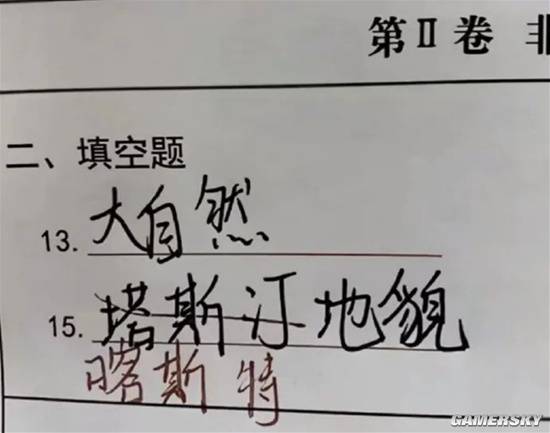 第Ⅱ卷 非
二、填空题
13. 大自然
15. 塔斯汀地貌
喀斯特
GAMERSKY